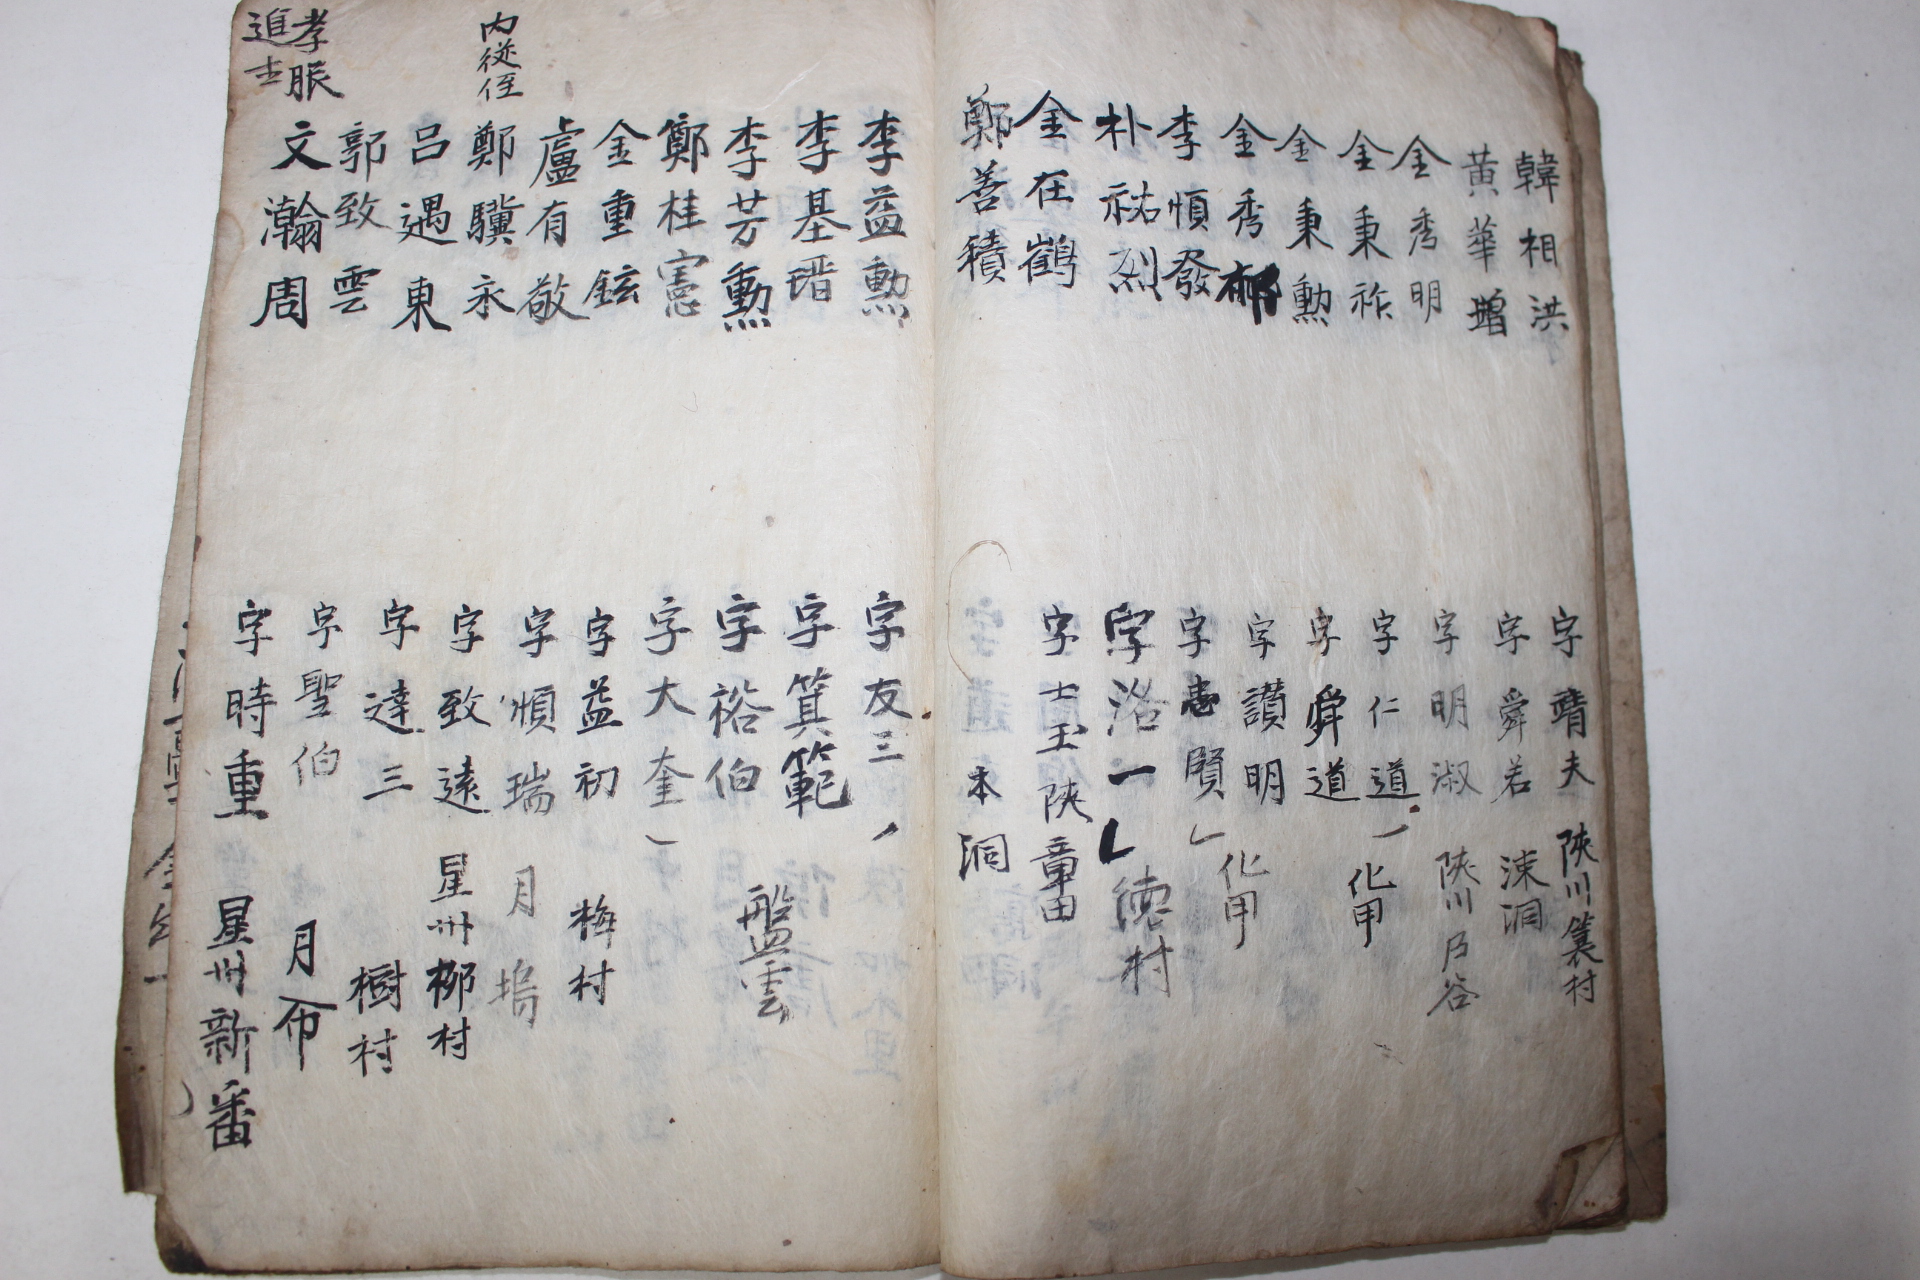 韓相洪 字靖夫 陜川簑村
黃華 字舜若 涑洞
金秀明 字明淑 陜川乃谷
金秉祚 字仁道 化甲
金秉勲 字舜道
金秀郁 字讃明 化甲
李順發 字惠賢
朴祐烈 字浴一 德村
金在鶴 字士玉 陜章田
鄭善積 本洞
李益勲 字友三
李基瑨 字箕範
李芳勲 字裕伯 盤雲
鄭桂憲 字大奎
金重鉉 字益初 梅村
盧有敬 字順瑞 月塢
內從侄 鄭驥永 字致遠 星州柳村
呂遇東 字達三 樹村
郭致雲 字聖伯 月布
孝服
進士
文瀚周 字時重 星州新番